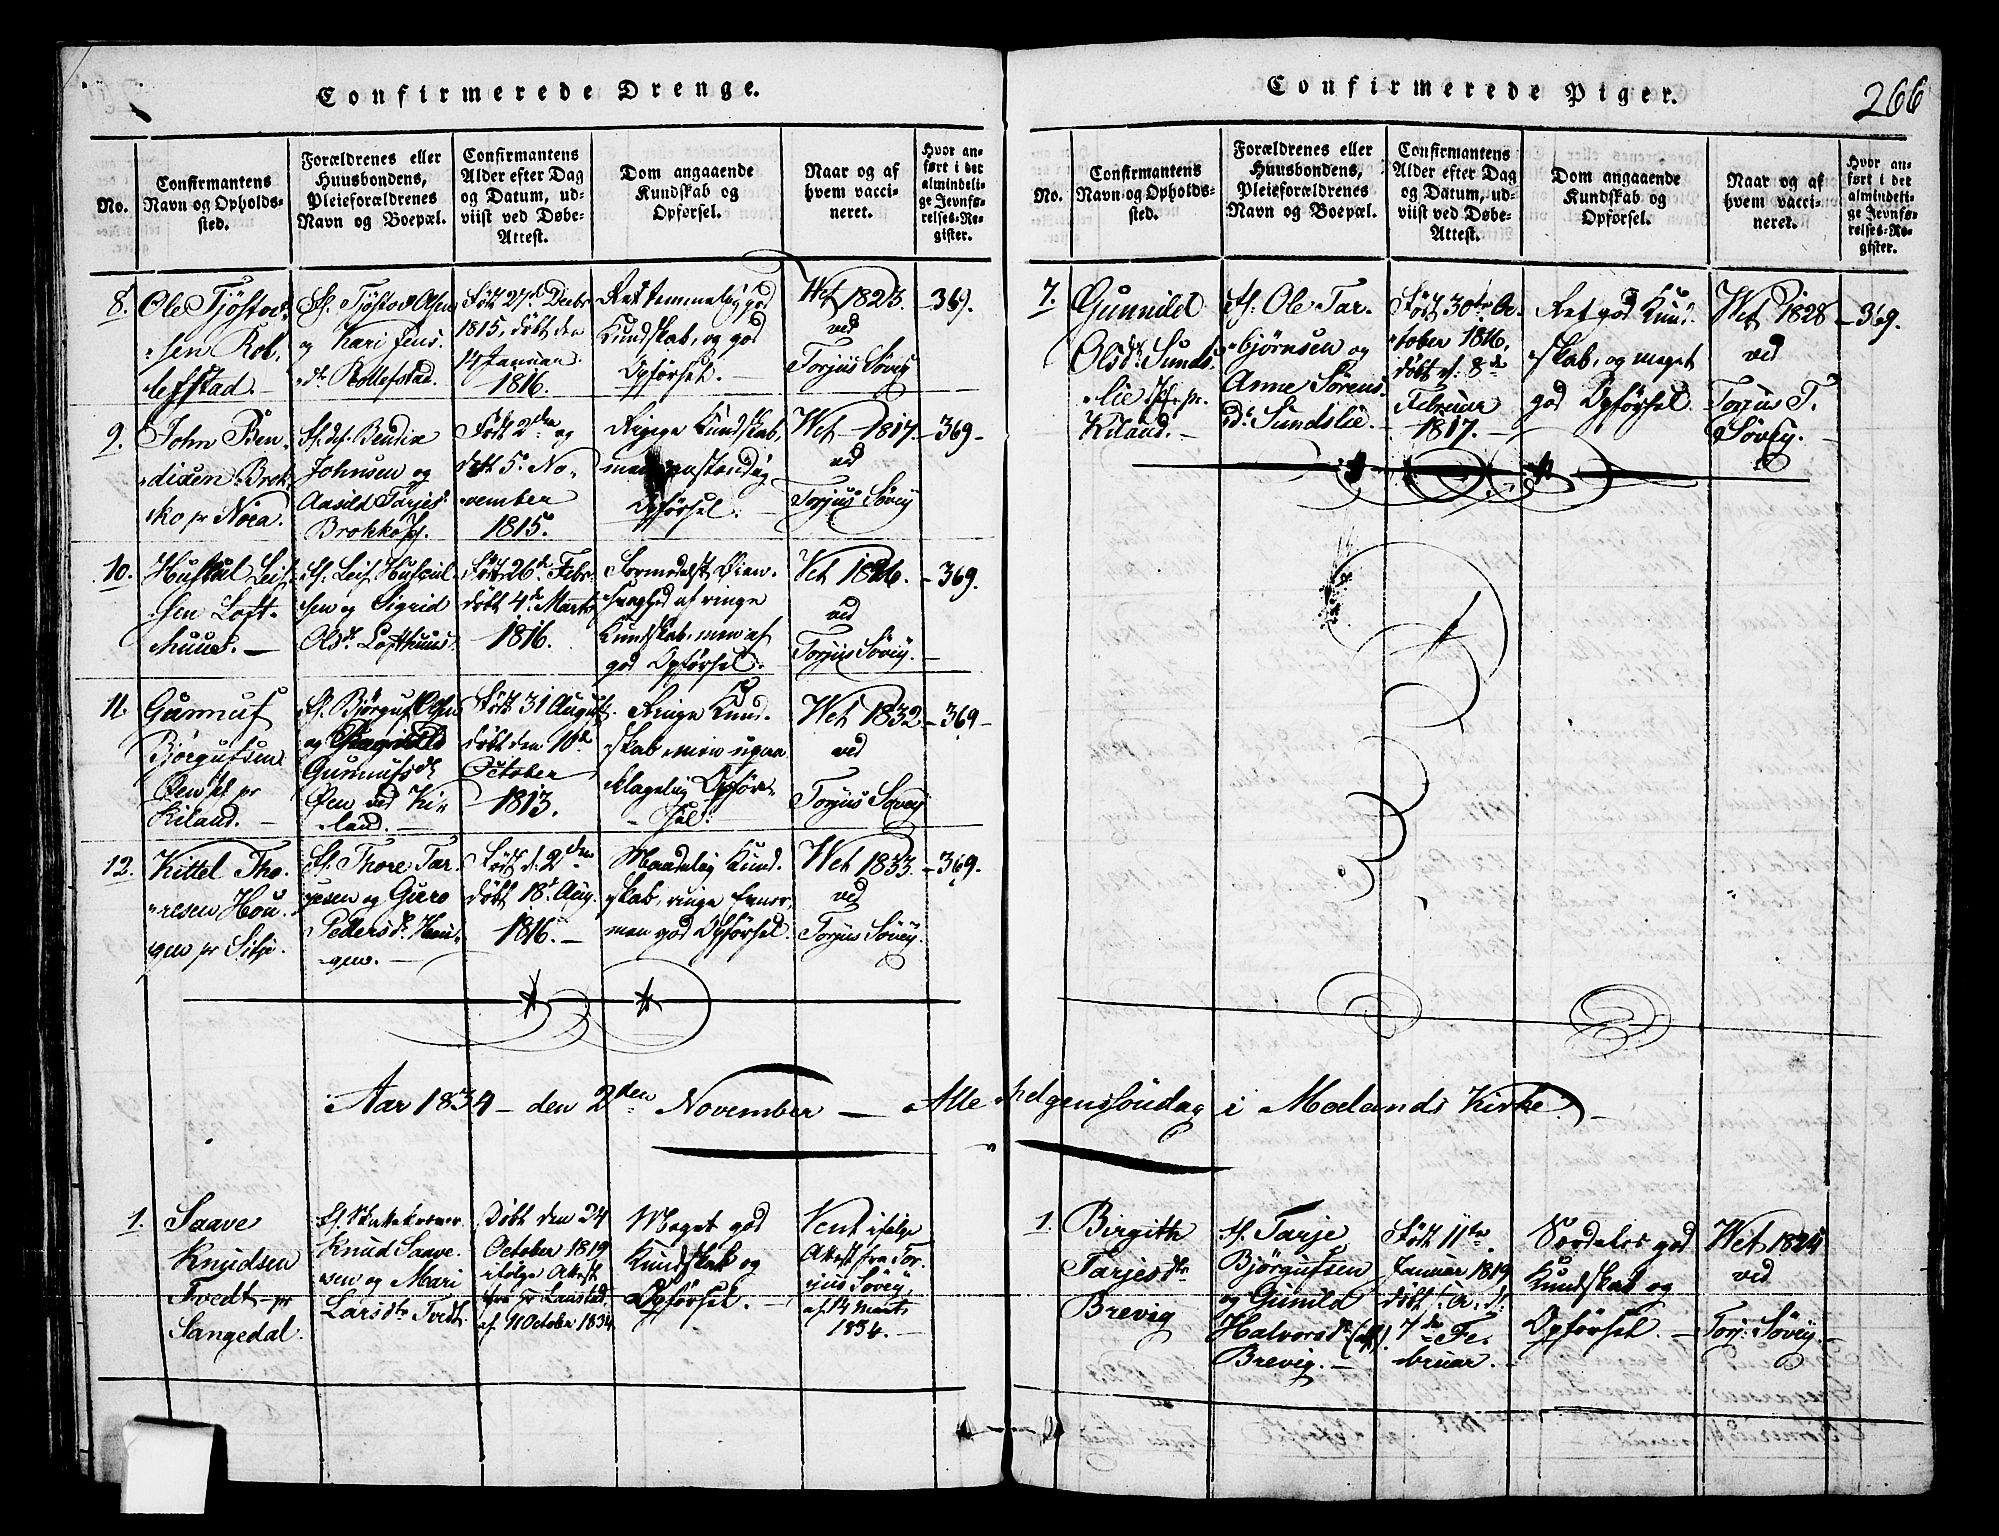 Confirmerede Drenge.
No.
Confirmantens
Navn og Opholds-
sted.
Forældrenes eller
Huusbondens,
Pleieforældrenes
Navn og Boepæl.
Confirmantens
Alder efter Dag
og Datum, ud-
viist ved Døbe-
Attest.
Dom angaaende
Kundskab og
Opførsel.
Naar og af
hvem vacci-
neret.
Hvor an-
ført i det
almindeli-
ge Jevnfø-
relses-Re-
gister.
8.
Ole Tjøstov-
sen Rol-
lefstad
F. Tjøstov Olsen
og Kari Jens-
dr. Rollefstad.
Født 27de Decbr
1815, døbt den
14 Januar
1816.
Ret temmelig god
Kundskab, og god
Opførsel.
Wet 1823.
ved
Torjus Søvey
369.
9.
John Ben-
dixen Brok-
ko pr Næa.
Bendix
Johnsen og
Aasild Tarjes
Brokko
Født 2den og
døbt 5. No-
vember
1815.
Ringe Kundskab,
men anstændig
Opførsel.
Wet 1817.
ved
Torjus Søvey
369.
10.
Huskul Leif-
sen Loft-
huus.
F. Leif Huskul-
sen og Sigrid
Olsdr. Lofthuus.
Født 26de Febr.
døbt 4de Marts
1816.
Formedelst Øien-
svaghed af ringe
Kundskab, men af
god Opførsel.
Wet 1826.
ved
Torjus Søvey.
369.
11.
Gunnuf
Bjørgufsen
Øen pr
Kiland.
F. Bjørguf Olsen
og Ragnild
Gunnufsdr
Øen ved Ki-
land.
Født 31 August
døbt den 10de
October
1813.
Ringe Kund-
skab, men upaa-
klagelig Opfør-
sel.
Wet 1832
ved
Torjus Søvey
369
12.
Kittel Tho-
resen Hou-
gen pr Sitje.
F. Thore Tar-
jesen og Guro
Pedersdr. Hou-
gen.
Født d. 2den
døbt 18de Aug.
1816.
Maadelig Kund-
skab, ringe Evner,
men god Opførsel.
Wet 1833.
ved
Torjus Søvey.
369.
Confirmerede Piger.
266
No.
Confirmantens
Navn og Opholds-
sted.
Forældrenes eller
Huusbondens,
Pleieforældrenes
Navn og Boepæl.
Confirmantens
Alder efter Dag
og Datum, ud-
viist ved Døbe-
Attest.
Dom angaaende
Kundskab og
Opførsel.
Naar og af
hvem vacci-
neret.
Hvor an-
ført i det
almindeli-
ge Jevnfø-
relses-Re-
gister.
7.
Gunnild
Olsdr. Sunds-
lie pr.
Kiland.
F. Ole Tar-
bjørnsen og
Anne Sørens-
dr. Sundslie.
Født 30te Oc-
tober 1816.
døbt d. 8de
Februar
1817.
Ret god Kund-
skab, og meget
god Opførsel.
Wet 1828
ved
Torjus T.
Søvey.
369.
Aar 1834 - den 2den November - Alle Helgenssøndag i Moelands Kirke.
1.
Saave
Knudsen
Tvedt pr
Sangedal.
F.
Knud Saave-
sen og Mari
Larsdr Tvedt.
Døbt den 24
October 1819
ifølge Attest
fra pr Laustad,
af 11 October 1834.
Meget god
Kundskab og
Opførsel.
Vent ifølge
Attest fra Tor-
jus Søvey,
af 14 Marts
1834.
1.
Birgith
Tarjesdr
Brevig
F. Tarje
Bjørgufsen
og Gunild
Halvorsdr
Brevig.
Født 11te
Januar 1819
døbt s. A. d.
7de Fe-
bruar.
Særdeles god
Kundskab og
Opførsel.
Wet 1824
ved
Torj. Søvey.